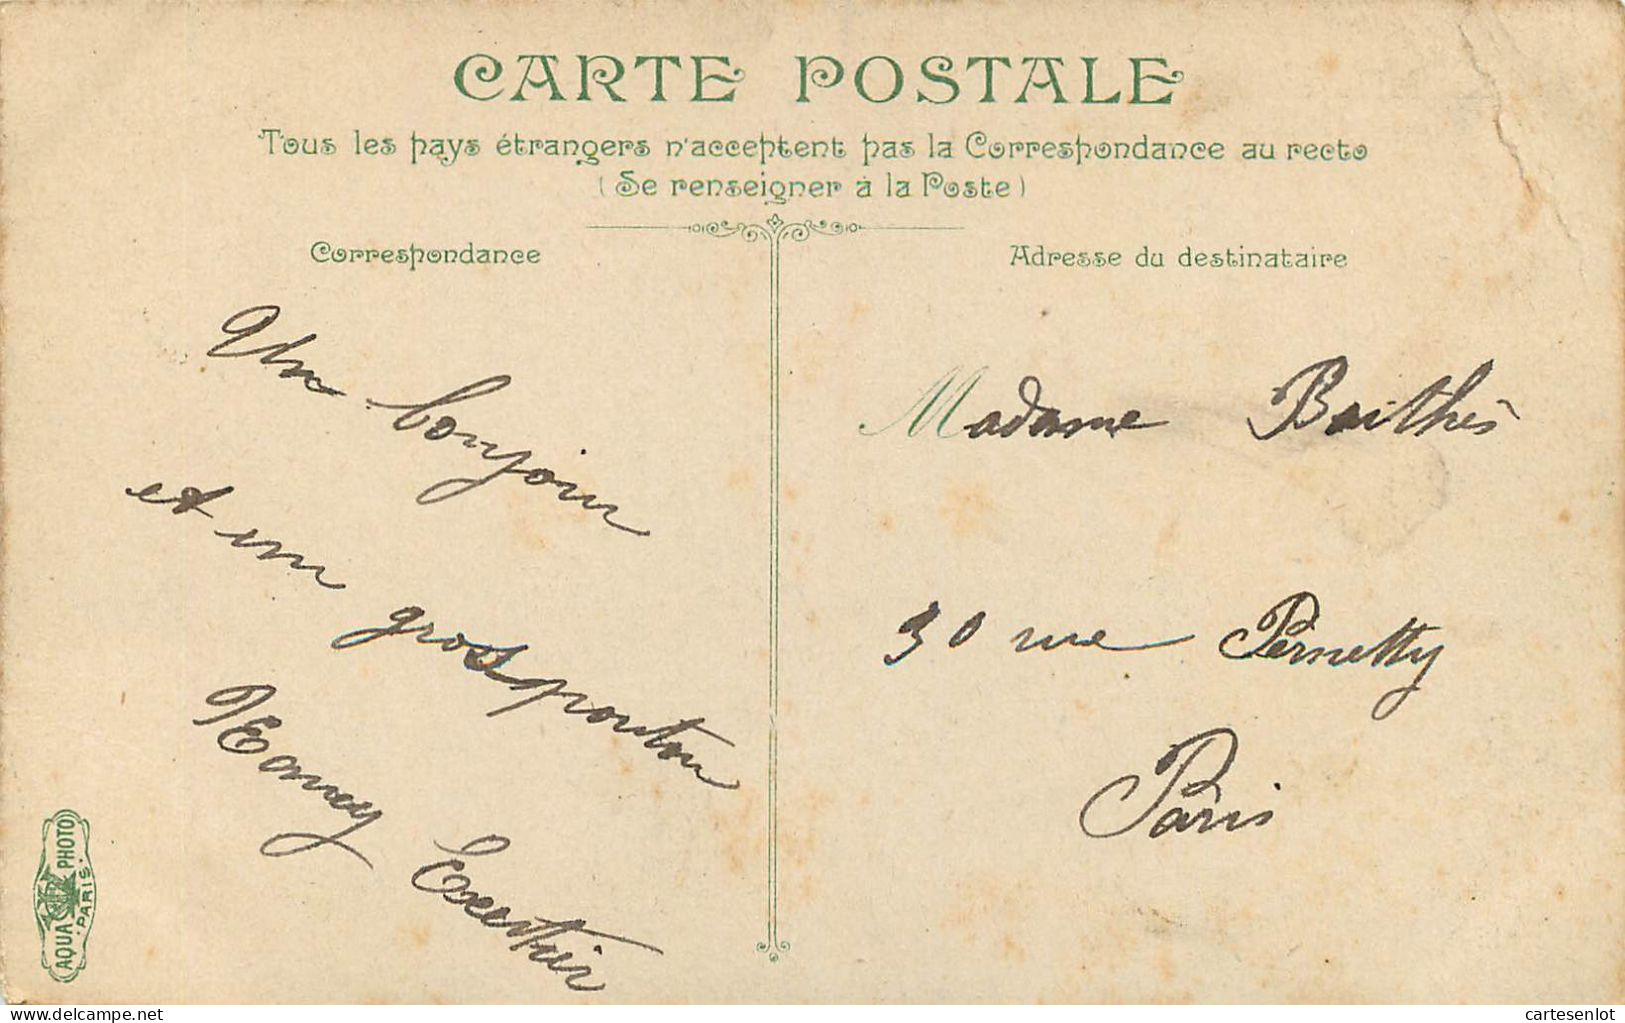 CARTE POSTALE
Tous les pays étrangers n'acceptent pas la Correspondance au recto
(Se renseigner à la Poste)
Correspondance
Un bonjour
et un gros pouton
AQUA PHOTO
PARIS
Adresse du destinataire
Madame Barthès
30 rue Pernetty
Paris
delcampe.net
cartesenlot